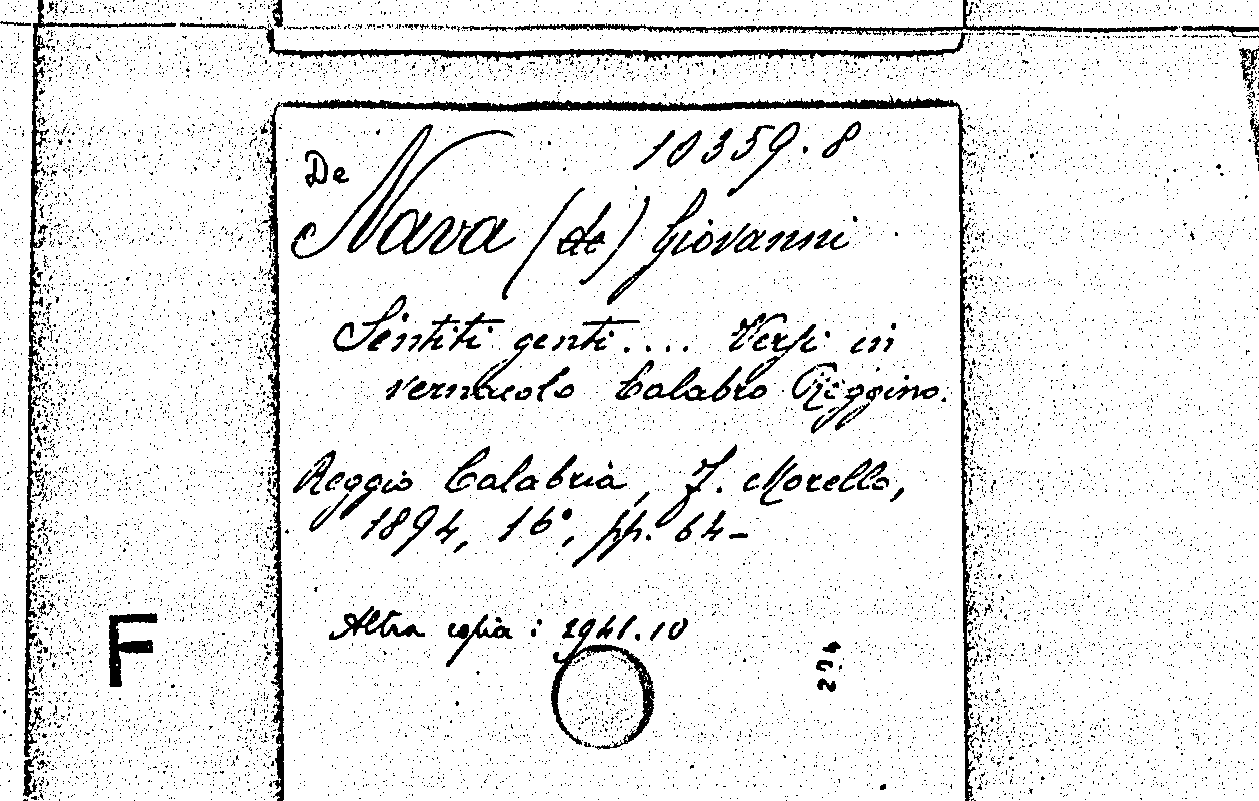 10359.8
De
Nava (de) Giovanni
Sentiti genti.... Versi in
vernacolo Calabro Reggino.
Reggio Calabria, F. Morello,
1894, 16°, pp. 64-
Altra copia: 2941.10
274
F